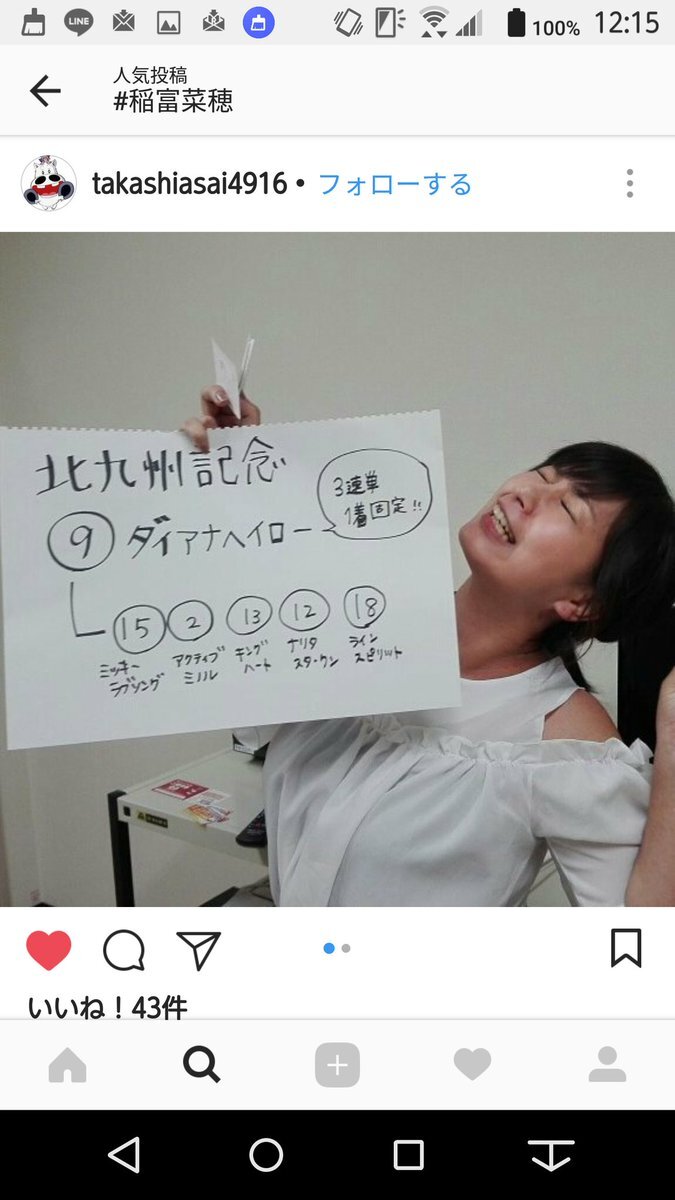 100% 12:15
LINE
人気投稿
#稲富菜穂
takashiasai4916 • フォローする
北九州記念
3連単
1着固定!!
9 ダイアナヘイロー
15 2 13 12 18
ミッキー
ラブソング
アクティブ
ミノル
キング
ハート
ナリタ
スターワン
ライン
スピリット
いいね！43件